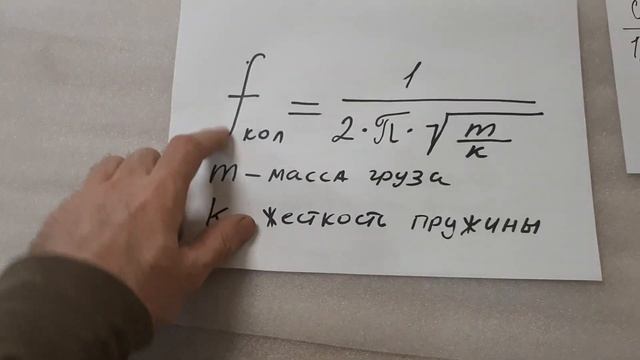 f кол = 1 / 2·π·√(m/k)
m - масса груза
k жесткость пружины